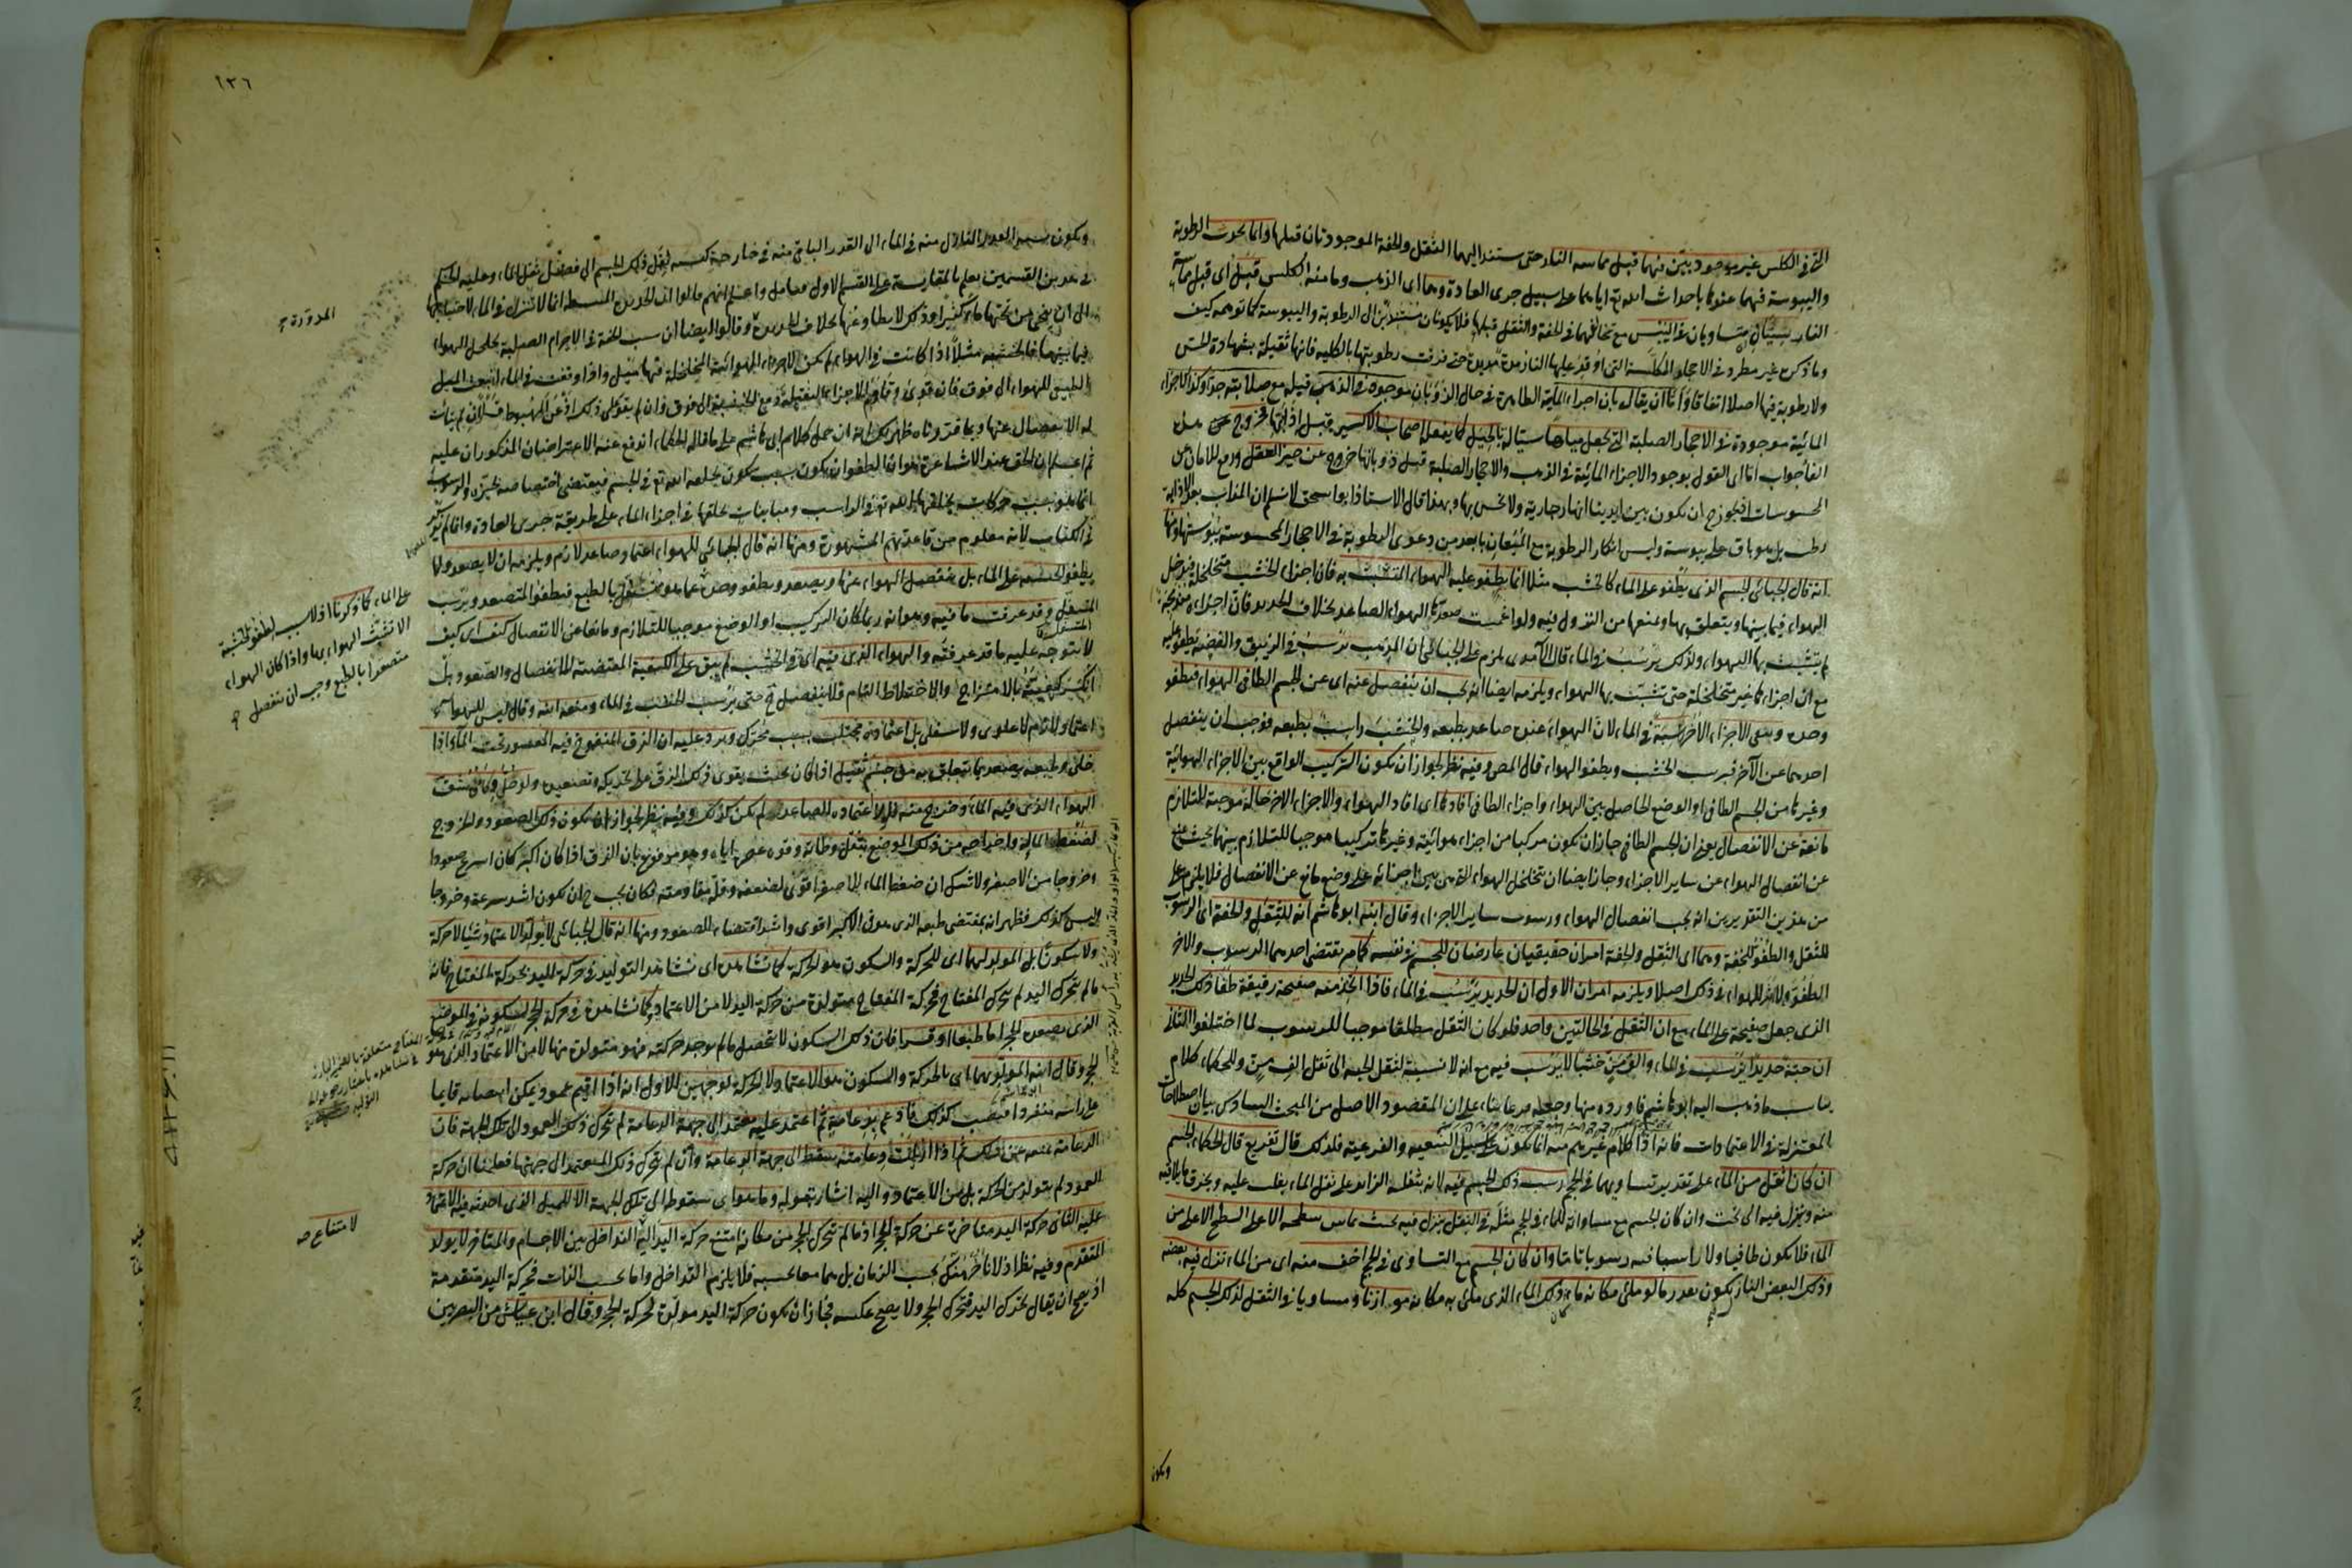 التى فى الكلس غير موجود بين منها قبل مماسة النار حتى يستند اليهما الثقل والخفة الموجودتان قبلها وانما تحدث الرطوبة
واليبوسة فيهما عندنا باحداث الله تع اياهما على سبيل جرى العادة وهما اى الذهب وما منه الكلس قبل اى قبل مماسة
النار سيان متساويان فى اليبس مع تخالفهما فى الخفة والثقل قبلها فلا يكونان مستندين الى الرطوبة واليبوسة كما توهمه كيف
وما ذكره غير مطرد فى الاحجار المكلسة التى اوقد عليها النار مدة مديدة حتى فرقت رطوبتها بالكلية فانها ثقيلة بشهادة الحس
ولا رطوبة فيها اصلا اتفاقا واما ان يقال بان اجزاء المائية الظاهرة فى حال الذوبان موجودة فى الذهب قبله مع صلابته جدا وكذا الاجزاء
المائية موجودة فى الاحجار الصلبة التى تجعل مياها سيالة بالحيل كما يفعله اصحاب الاكسير قبل اذابتها فخروج عن
اما القول بوجود الاجزاء المائية فى الذهب والاحجار الصلبة قبل ذوبانها خروج عن حيز العقل ورفع للامان من
المحسوسات فيجوز ح ان يكون بين ايدينا انهار جارية ولا نحس بها وبهذا قال الاستاذ ابو اسحق لا نسلم ان المذاب بعد الاذابة
رطب بل هو باق على يبوسته وليس انكار الرطوبة مع الميعان بابعد من دعوى الرطوبة فى الاحجار المحسوسة يبوستها ومنها
انه قال الجبائى الجسم الذى يطفو على الماء كالخشب مثلا انما يطفو عليه للهواء المتشبث به فان اجزاء الخشب متخلخلة فيدخل
الهواء فيما بينها ويتعلق بها ويمنعها من النزول فيه ولو اغمست صعدها الهواء الصاعد بخلاف الحديد فان اجزاءه مندمجة
لم يتشبث بها الهواء ولذلك يرسب فى الماء قال الآمدى يلزم على الجبائى ان الذهب يرسب فى الزيبق والفضة يطفو عليه
مع ان اجزاءها غير متخلخلة حتى يتشبث بها الهواء ويلزمه ايضا انه يجب ان ينفصل عنه اى عن الجسم الطافى الهواء فيطفو
وحده ويبقى الاجزاء الاخر راسبة فى الماء لان الهواء عنده صاعد بطبعه والخشب راسب بطبعه فوجب ان ينفصل
احدهما عن الآخر فيرسب الخشب ويطفو الهواء قال المص وفيه نظر لجواز ان يكون التركيب الواقع بين الاجزاء الهوائية
وغيرها من الجسم الطافى او الوضع الحاصل بين الهواء واجزاء الطافى افادها اى افاد الهواء والاجزاء الاخر حالة موجبة للتلازم
مانعة عن الانفصال يعنى ان الجسم الطافى جاز ان يكون مركبا من اجزاء هوائية وغيرها تركيبا موجبا للتلازم بينها بحيث يمنع
عن انفصال الهواء عن ساير الاجزاء وجاز ايضا ان يتخلخل الهواء الذى بين اجزائه على وضع مانع عن الانفصال فلا يلزم على
من هذين التقديرين انه يجب انفصال الهواء ورسوب ساير الاجزاء وقال ابنه ابو هاشم انه للثقل والخفة اى الرسوب
للثقل والطفو للخفة وهما اى الثقل والخفة امران حقيقيان عارضان للجسم فى نفسه كما مر يقتضى احدهما الرسوب والآخر
الطفو ولا اثر للهواء فى ذلك اصلا ويلزمه امران الاول ان الحديد يرسب فى الماء فاذا اتخذ منه صفيحة رقيقة طفا ذلك الحديد
الذى جعل صفيحة على الماء مع ان الثقل فى الحالتين واحد فلو كان الثقل مطلقا موجبا للرسوب لما اختلفوا الثانى
ان حبة حديدا يرسب فى الماء والف من خشبا لا يرسب فيه مع انه لا نسبة لثقل الحبة الى ثقل الف من وللحكماء كلام
يناسب ما ذهب اليه ابو هاشم فاورده منها وجعله فرعا بناء على ان المقصود الاصل من المبحث السادس بيان اصطلاحات
المعتزلة فى الاعتمادات فانه اذا كلام غيرهم منه انما يكون على سبيل التبعية والفرعية فلذلك قال تفريع قال الحكماء الجسم
ان كان اثقل من الماء على تقدير تساويهما فى الحجم رسب ذلك الجسم فيه لانه بثقله الزائد على ثقل الماء يغلب عليه ويخرق ما يلاقيه
منه وينزل فيه الى تحت وان كان الجسم مع مساواته للماء فى الحجم مثله فى الثقل ينزل فيه بحيث يماس سطحه الاعلى السطح الاعلى من
الماء فلا يكون طافيا ولا راسبا فيه رسوبا تاما وان كان الجسم مع التساوى فى الحجم اخف منه اى من الماء نزل فيه بعضه
وذلك البعض النازل يكون بقدر ما لو ملئ مكانه ماء كان ذلك الماء الذى ملئ به مكانه موازنا ومساويا فى الثقل لذلك الجسم كله
ويكون
١٣٦
ويكون نسبة القدر النازل منه فى الماء الى القدر الباقى منه فى خارجه كنسبة ثقل ذلك الجسم الى فضل ثقل الماء وعليه الحكم
فى هذين القسمين يعلم بالمقايسة على القسم الاول فتأمل واعلم انهم قالوا ان الحديد المنبسط انما لا ينزل فى الماء لاحتياجه
الى ان ينحى من تحتها ماء كثيرا وذلك لا يطاوعها بخلاف الحديدة وقالوا ايضا ان سبب الخفة فى الاجرام الصلبة تخلخل الهواء
فيما بينها فالخشبة مثلا اذا كانت فى الهواء لم يكن للاجزاء الهوائية المتخلخلة فيها ميل واذا وقعت فى الماء انبعث الميل
الطبيعى للهواء الى فوق فان قوى وقاوم الاجزاء الثقيلة دفع الخشبة الى فوق وان لم يقو على ذلك اذعن للهبوط قسرا ان لم يتأت
له الانفصال عنها وبما قررناه ظهر لك انه ان حمل كلام ابى هاشم على ما قاله الحكماء اندفع عنه الاعتراضان المذكوران عليه
ثم اعلم ان الحق عند الاشاعرة هو ان الطفو ان يكون بسبب سكون يخلقه الله تع فى الجسم فيقتضى اختصاصه بحيزه والرسوب
انما هو بسبب حركات يخلقها الله تع فى الراسب ومباينات يخلقها فى اجزاء الماء على طريقة جرى العادة وانما لم يذكر
فى الكتاب لانه معلوم من قاعدتهم المشهورة ومنها انه قال الجبائى للهواء اعتماد صاعد لازم ويلزمه ان لا يصعد ولا
يطفو الخشبة على الماء بل ينفصل الهواء عنها ويصعد ويطفو وحده عما هو متسفل بالطبع فيطفو المتصعد ويرسب
المتسفل وقد عرفت ما فيه وهو انه ربما كان التركيب او الوضع موجبا للتلازم ومانعا عن الانفصال كيف اى كيف
لا يتوجه عليه ما قد عرفته والهواء الذى فيه اى فى الخشب لم يبق على الكيفية المقتضية للانفصال والصعود بل
انكسرت كيفيته بالامتزاج والاختلاط التام فلا ينفصل ح حتى يرسب الخشب فى الماء ومنعه ابنه وقال ليس للهواء
اعتماد لازم لا علوى ولا سفلى بل اعتماده مجتلب بسبب محرك ويرد عليه ان الزق المنفوخ فيه المقسور تحت الماء اذا
خلى وطبعه يصعد بما يتعلق به من جسم ثقيل اذا كان بحيث يقوى ذلك الزق على تحريكه وتصعيده ولو شق
الهواء الذى فيه الماء وخرج منه فلولا اعتماده الصاعد لم يكن كذلك وفيه نظر لجواز ان يكون ذلك الصعود والخروج
لضغط الماء له واخراجه من ذلك الموضع بثقل وطأته وقوة عصره اياه وهو مرفوع بان الزق اذا كان اكبر كان اسرع صعودا
وخروجا من الاصغر ولا شك ان ضغط الماء للاصغر اقوى لضعفه وقلة مقاومته فكان يجب ح ان يكون اشد سرعة وخروجا
وليس كذلك فظهر انه بمقتضى طبعه الذى هو فى الاكبر اقوى واشد اقتضاء للصعود ومنها انه قال الجبائى لا يولد الاعتماد شيئا لا حركة
ولا سكونا بل المولد لهما اى للحركة والسكون هو الحركة كما نشاهده اى نشاهد التوليد فى حركة اليد بحركة المفتاح فانه
ما لم يتحرك اليد لم يتحرك المفتاح فحركة المفتاح متولدة من حركة اليد لا من الاعتماد وكما نشاهده فى حركة الحجر لسكونه فى الموضع
الذى يصعد الحجر اما طبعا او قسرا فان ذلك السكون لا تحصل ما لم يوجد حركته فهو متولدة منها لا من الاعتماد الذى هو
الحجر وقال ابنه المولد لهما اى بالحركة والسكون هو الاعتماد لا الحركة لوجهين الاول انه اذا اقيم عمود يمكن انتصابه قايما
على رأسه منفردا فنصب كذلك فادعم بدعامة ثم اعتمد عليه معتمد الى جهة الدعامة لم يتحرك ذلك العمود الى تلك الجهة فان
الدعامة تمنعه عن ذلك ثم اذا ازيلت دعامته سقط الى جهة الدعامة وان لم يتحرك ذلك المعتمد الى جهتها فعلمنا ان حركة
العمود لم يتولد من الحركة بل من الاعتماد واليه اشار بقوله وما هو اى سقوطه الى تلك الجهة الا للميل الذى احدثه فيه الاعتماد
عليه الثانى حركة اليد متأخرة عن حركة الحجر اذ ما لم يتحرك الحجر من مكانه امتنع حركة اليد اليه التداخل بين الاجسام والمتأخر لا يولد
المتقدم وفيه نظر اذ لا تأخر هناك بحسب الزمان بل هما معا بحسبه فلا يلزم التداخل واما بحسب الذات فحركة اليد متقدمة
اذ يصح ان يقال تحرك اليد فتحرك الحجر ولا يصح عكسه فجاز ان يكون حركة اليد مولدة لحركة الحجر وقال ابن عياش من البصريين
المدورة
على الماء كما ذكرنا اذ لا سبب لطفو الخشبة
الا تشبث الهواء بها واذا كان الهواء
متصعدا بالطبع وجب ان ينفصل
لامتناع صه